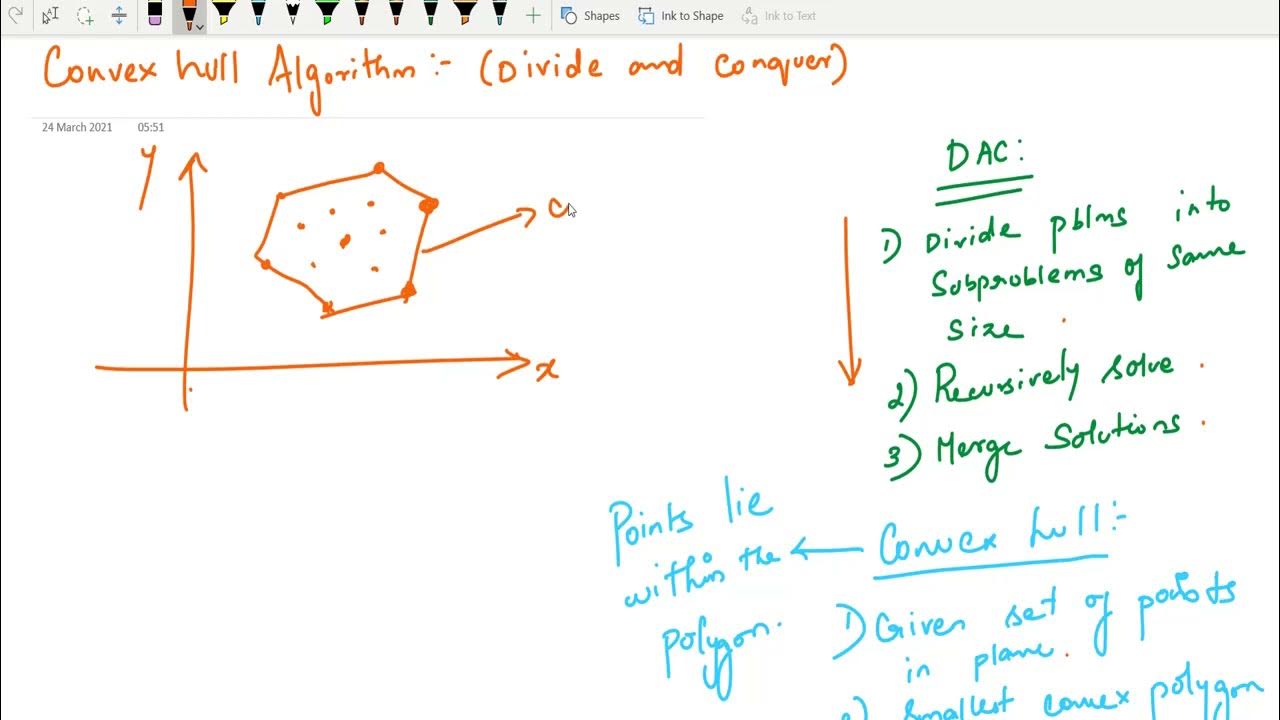 Shapes
Ink to Shape
Ink to Text
Convex hull Algorithm:- (Divide and conquer)
24 March 2021 05:51
y
x
C
DAC:
1) Divide pblms into
Subproblems of same
size
2) Recursively solve.
3) Merge Solutions.
Points lie
within the
polygon.
Convex hull:-
1) Given set of points
in plane.
2) Smallest convex polygon